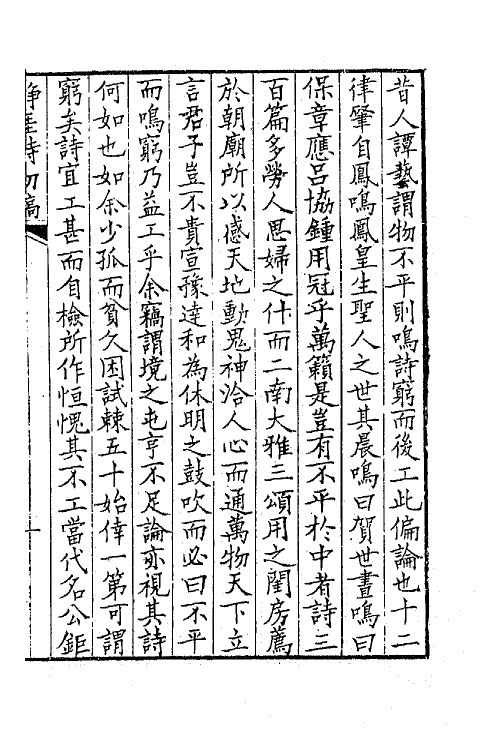 昔人譚藝謂物不平則鳴詩窮而後工此偏論也十二
律肇自鳳鳴鳳皇生聖人之世其晨鳴曰賀世晝鳴曰
保章應呂協鍾用冠乎萬籟是豈有不平於中者詩三
百篇多勞人思婦之什而二南大雅三頌用之閨房薦
於朝廟所以感天地動鬼神洽人心而通萬物天下立
言君子豈不貴宣豫達和為休明之鼓吹而必曰不平
而鳴窮乃益工乎余竊謂境之屯亨不足論亦視其詩
何如也如余少孤而貧久困試棘五十始倖一第可謂
窮矣詩宜工甚而自檢所作恒愧其不工當代名公鉅
詩初稿
一